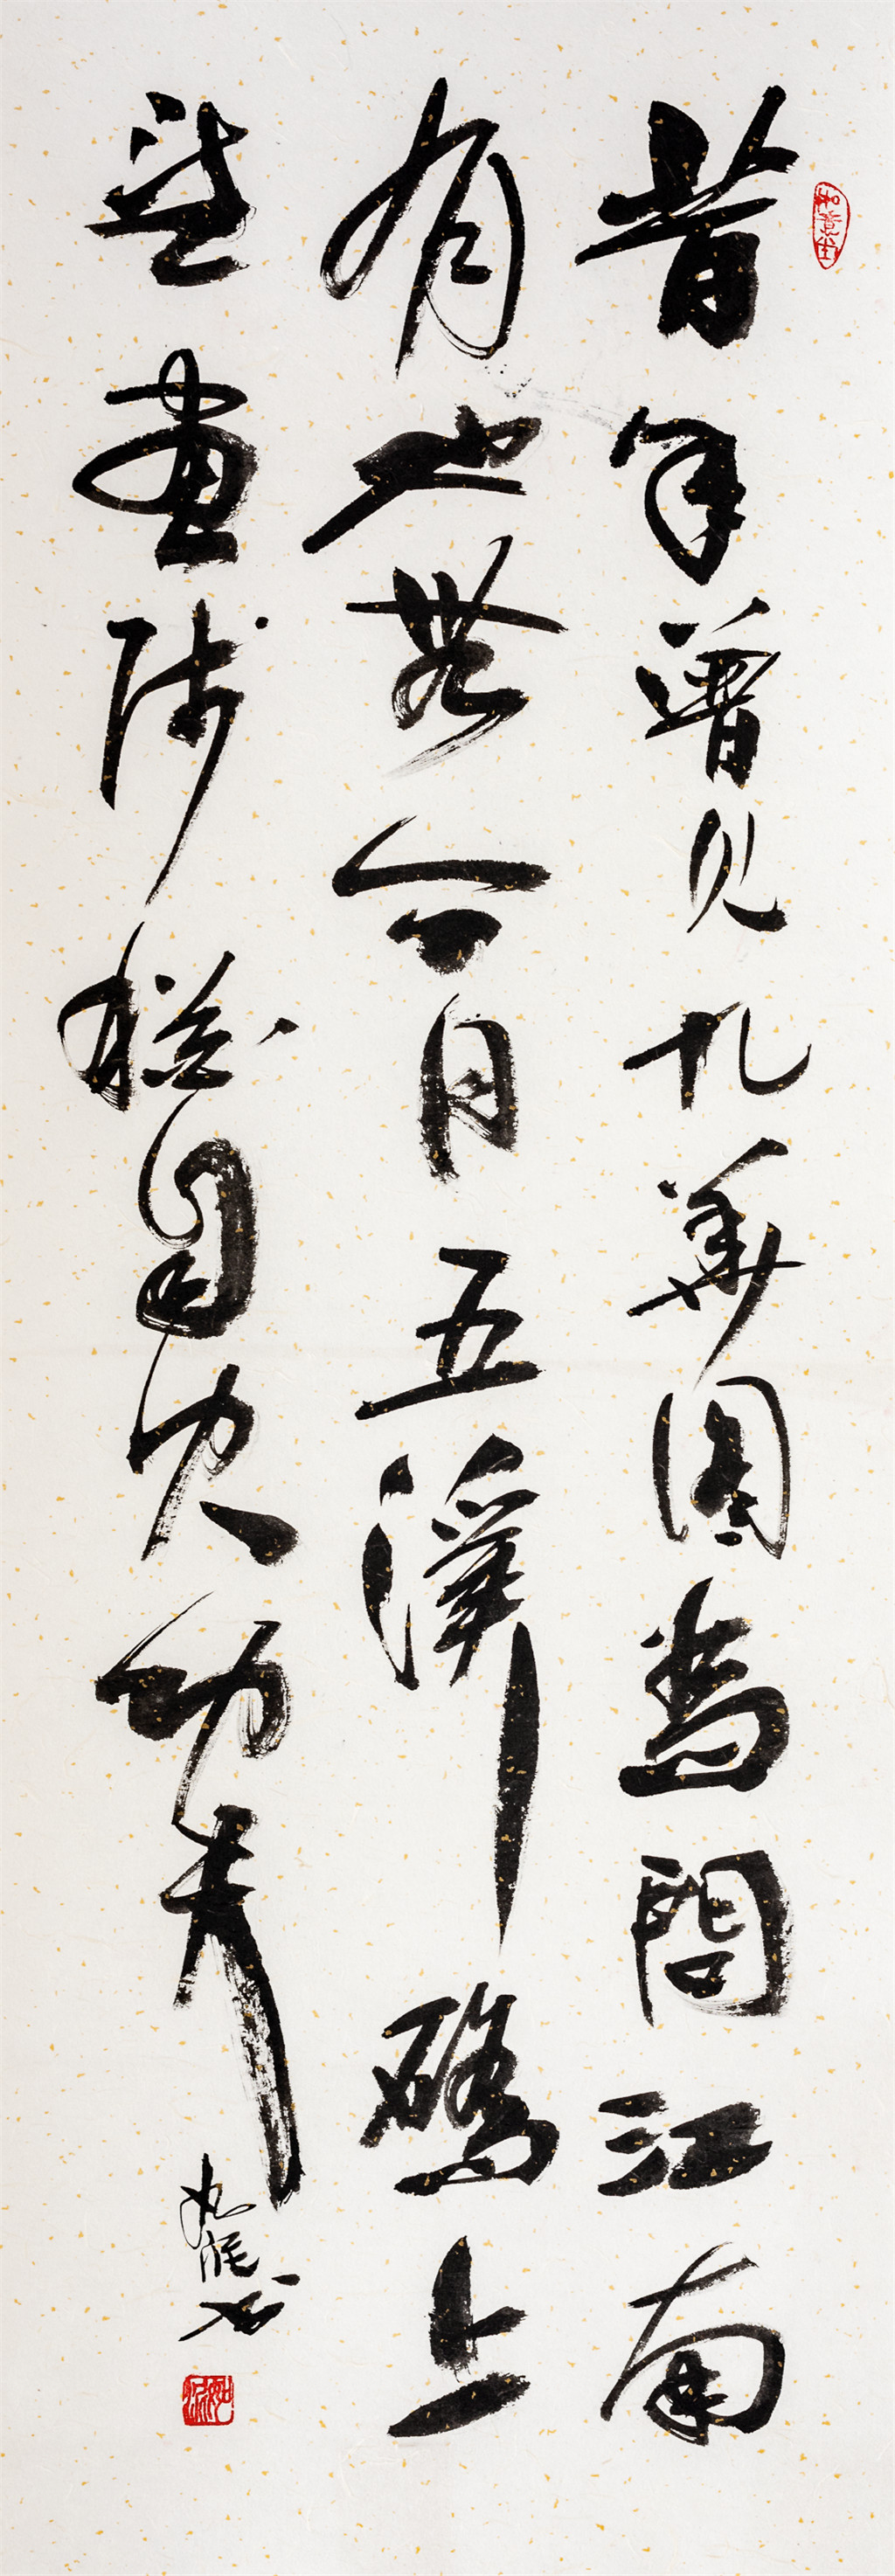 昔年曾见九華圖為問江南
有也無今日五溪橋上
望畫師猶自欠功夫